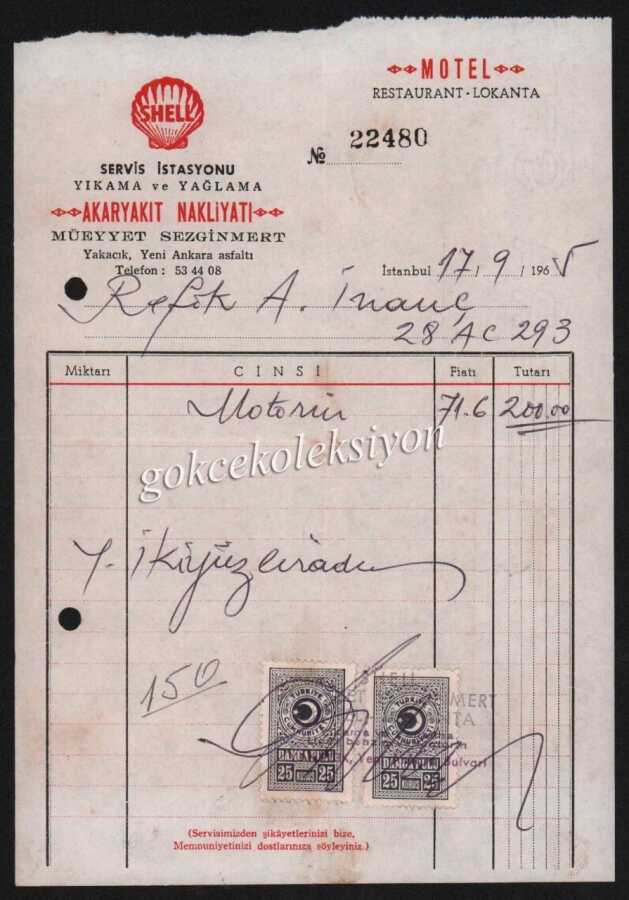 MOTEL
RESTAURANT - LOKANTA
SHELL
№ 22480
SERVİS İSTASYONU
YIKAMA ve YAĞLAMA
AKARYAKIT NAKLİYATI
MÜEYYET SEZGİNMERT
Yakacık, Yeni Ankara asfaltı
Telefon : 53 44 08
İstanbul 17 / 9 / 1965
Refik A. İnanç
28 AC 293
Miktarı CİNSİ Fiatı Tutarı
Motorin 71.6 200.00
gokcekoleksiyon
Y. İkiyüzliradır
150
TÜRKİYE CUMHURİYETİ TÜRKİYE CUMHURİYETİ
DAMGA PULU DAMGA PULU
25 KURUŞ 25 25 KURUŞ 25
MERT
Bulvarı
(Servisimizden şikâyetlerinizi bize,
Memnuniyetinizi dostlarınıza söyleyiniz.)